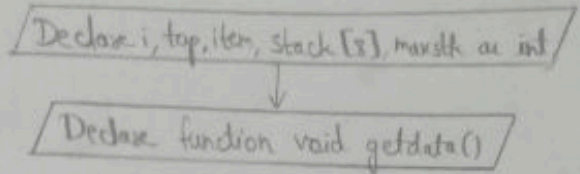 Declare i, top, item, stack [8], maxstk as int
Declare function void getdata()